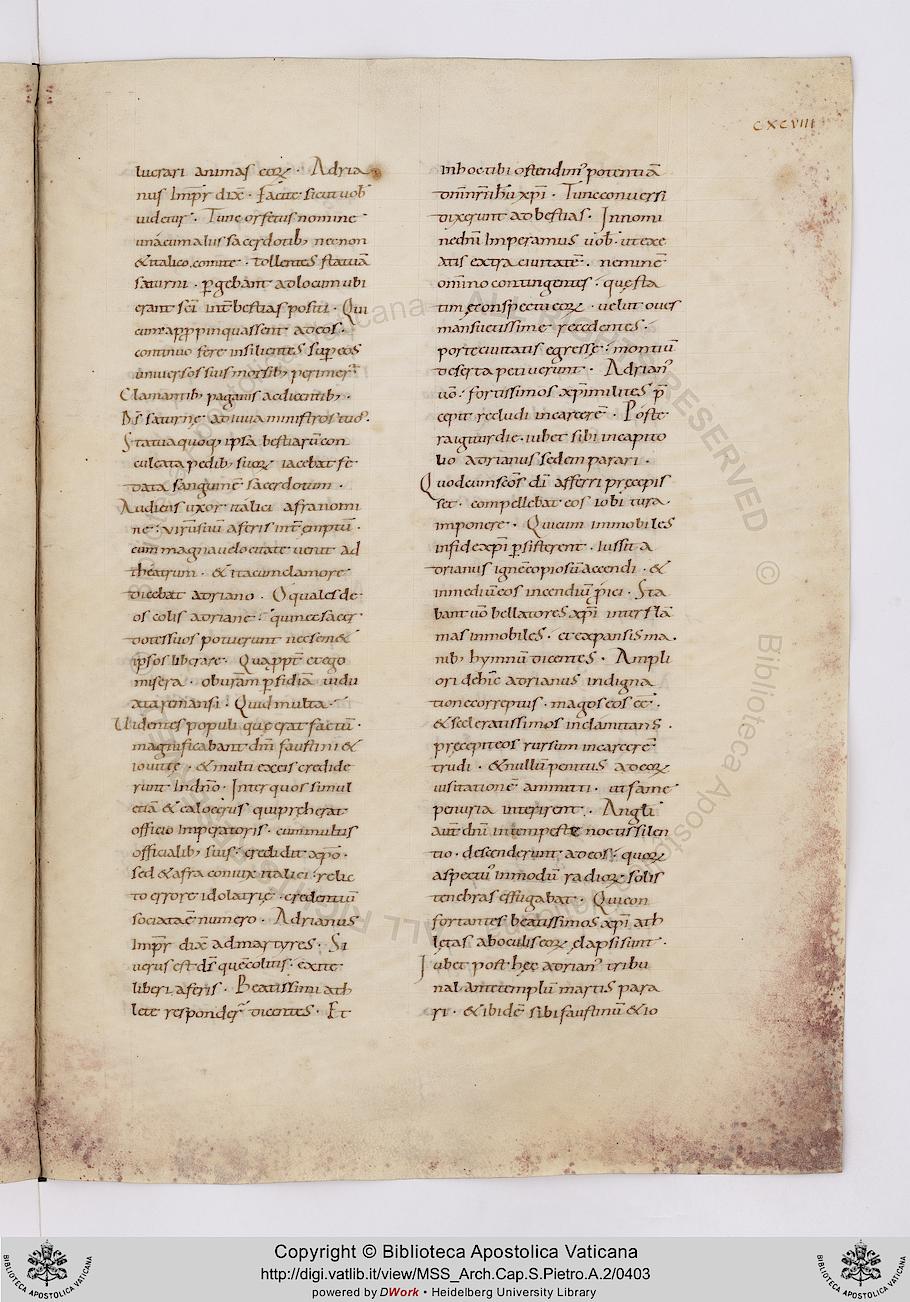 CXCVIII
lucrari animas eoꝝ · Adria
nus Impr̄ dix̄ · Facite sicut uob̄
uidetur · Tunc orfetus nomine
una cum aliis sacerdotib; necnon
& italico comite · tollentes statuā
saturni · ꝑgebant ad locum ubi
erant sc̄i int̄ bestias positi · Qui
cum appropinquassent ad eos ·
continuo fere insilientes suꝑ eos
uniuersos suis morsib; perimer̄ ·
Clamantib; paganis ac dicentib; ·
saturne adiuua ministros tuos ·
Statua quoq; ipsa bestiarū con
culcata pedib; suoꝝ iacebat fe
data sanguine sacerdotum ·
Audiens uxor italici afra nomi
ne · uirum suū a feris int̄emptū ·
cum magna uelocitate uenit ad
theatrum · & ita cum clamore
dicebat adriano · O quales de
os colis adriane · qui nec sacer
dotes suos potuerunt nec sem&
ipsos liberare · Qua ꝓpt̄ et ego
misera · ob uram ꝑfidiā uidu
ata remansi · Quid multa ·
Uidentes populi quę erat factū ·
magnificabant dm̄ faustini &
iouitte · & multi ex eis credide
runt In dn̄o · Inter quos simul
etiā & calocerus qui preherat
officio Imperatoris · cum multis
officialib; suis · credidit xp̄o ·
sed & afra coniux italici · relic
to errore idolatrię · credentiū
sociata ē numero · Adrianus
Impr̄ dix̄ ad martyres · Si
uerus est ds̄ quē colitis · exite
liberi a feris · Beatissimi ath
lete responder̄ dicentes · Et
in hoc tibi ostendim' potentiā
dn̄i nr̄i ihū xp̄i · Tunc conuersi
dixerunt ad bestias · In nomi
ne dn̄i Imperamus uob̄ · ut exe
atis extra ciuitatē · neminē
omnino contingentes · quę sta
tim e conspectu eoꝝ · uelut oues
mansuetissime recedentes ·
porte ciuitatis egresse · montiū
deserta petiuerunt · Adrian'
uō · fortissimos xp̄i milites p̄
cepit recludi in carcere · Poste
ra igitur die · iubet sibi in capito
lio adrianus sedem parari ·
Quo dum scōs dī afferri precepis
set · compellebat eos ioui tura
imponere · Qui cum immobiles
in fide xp̄i ꝑsisterent · Iussit a
drianus ignē copiosū accendi · &
in mediū eos incendiū ꝓici · Sta
bant uō bellatores xp̄i inter flā
mas immobiles · et expansis ma
nib; hymnū dicentes · Ampli
ori dehinc adrianus indigna
tione correptus · magos eos eē ·
& sceleratissimos inclamitans ·
precepit eos rursum in carcere
trudi · & nullū penitus ad eoꝝ
uisitationē ammitti · ut fame
penuria interirent · Angli
aūt dn̄i intempestę noctis silen
tio · descenderunt ad eos · quoꝝ
aspectu' in modū radioꝝ solis
tenebras effugabat · Qui con
fortantes beatissimos xp̄i ath
letas ab oculis eoꝝ elapsi sunt ·
Iubet post hęc adrian' tribu
nal ante templū martis para
ri · & ibidē sibi faustinū & io
Copyright © Biblioteca Apostolica Vaticana
http://digi.vatlib.it/view/MSS_Arch.Cap.S.Pietro.A.2/0403
powered by DWork • Heidelberg University Library